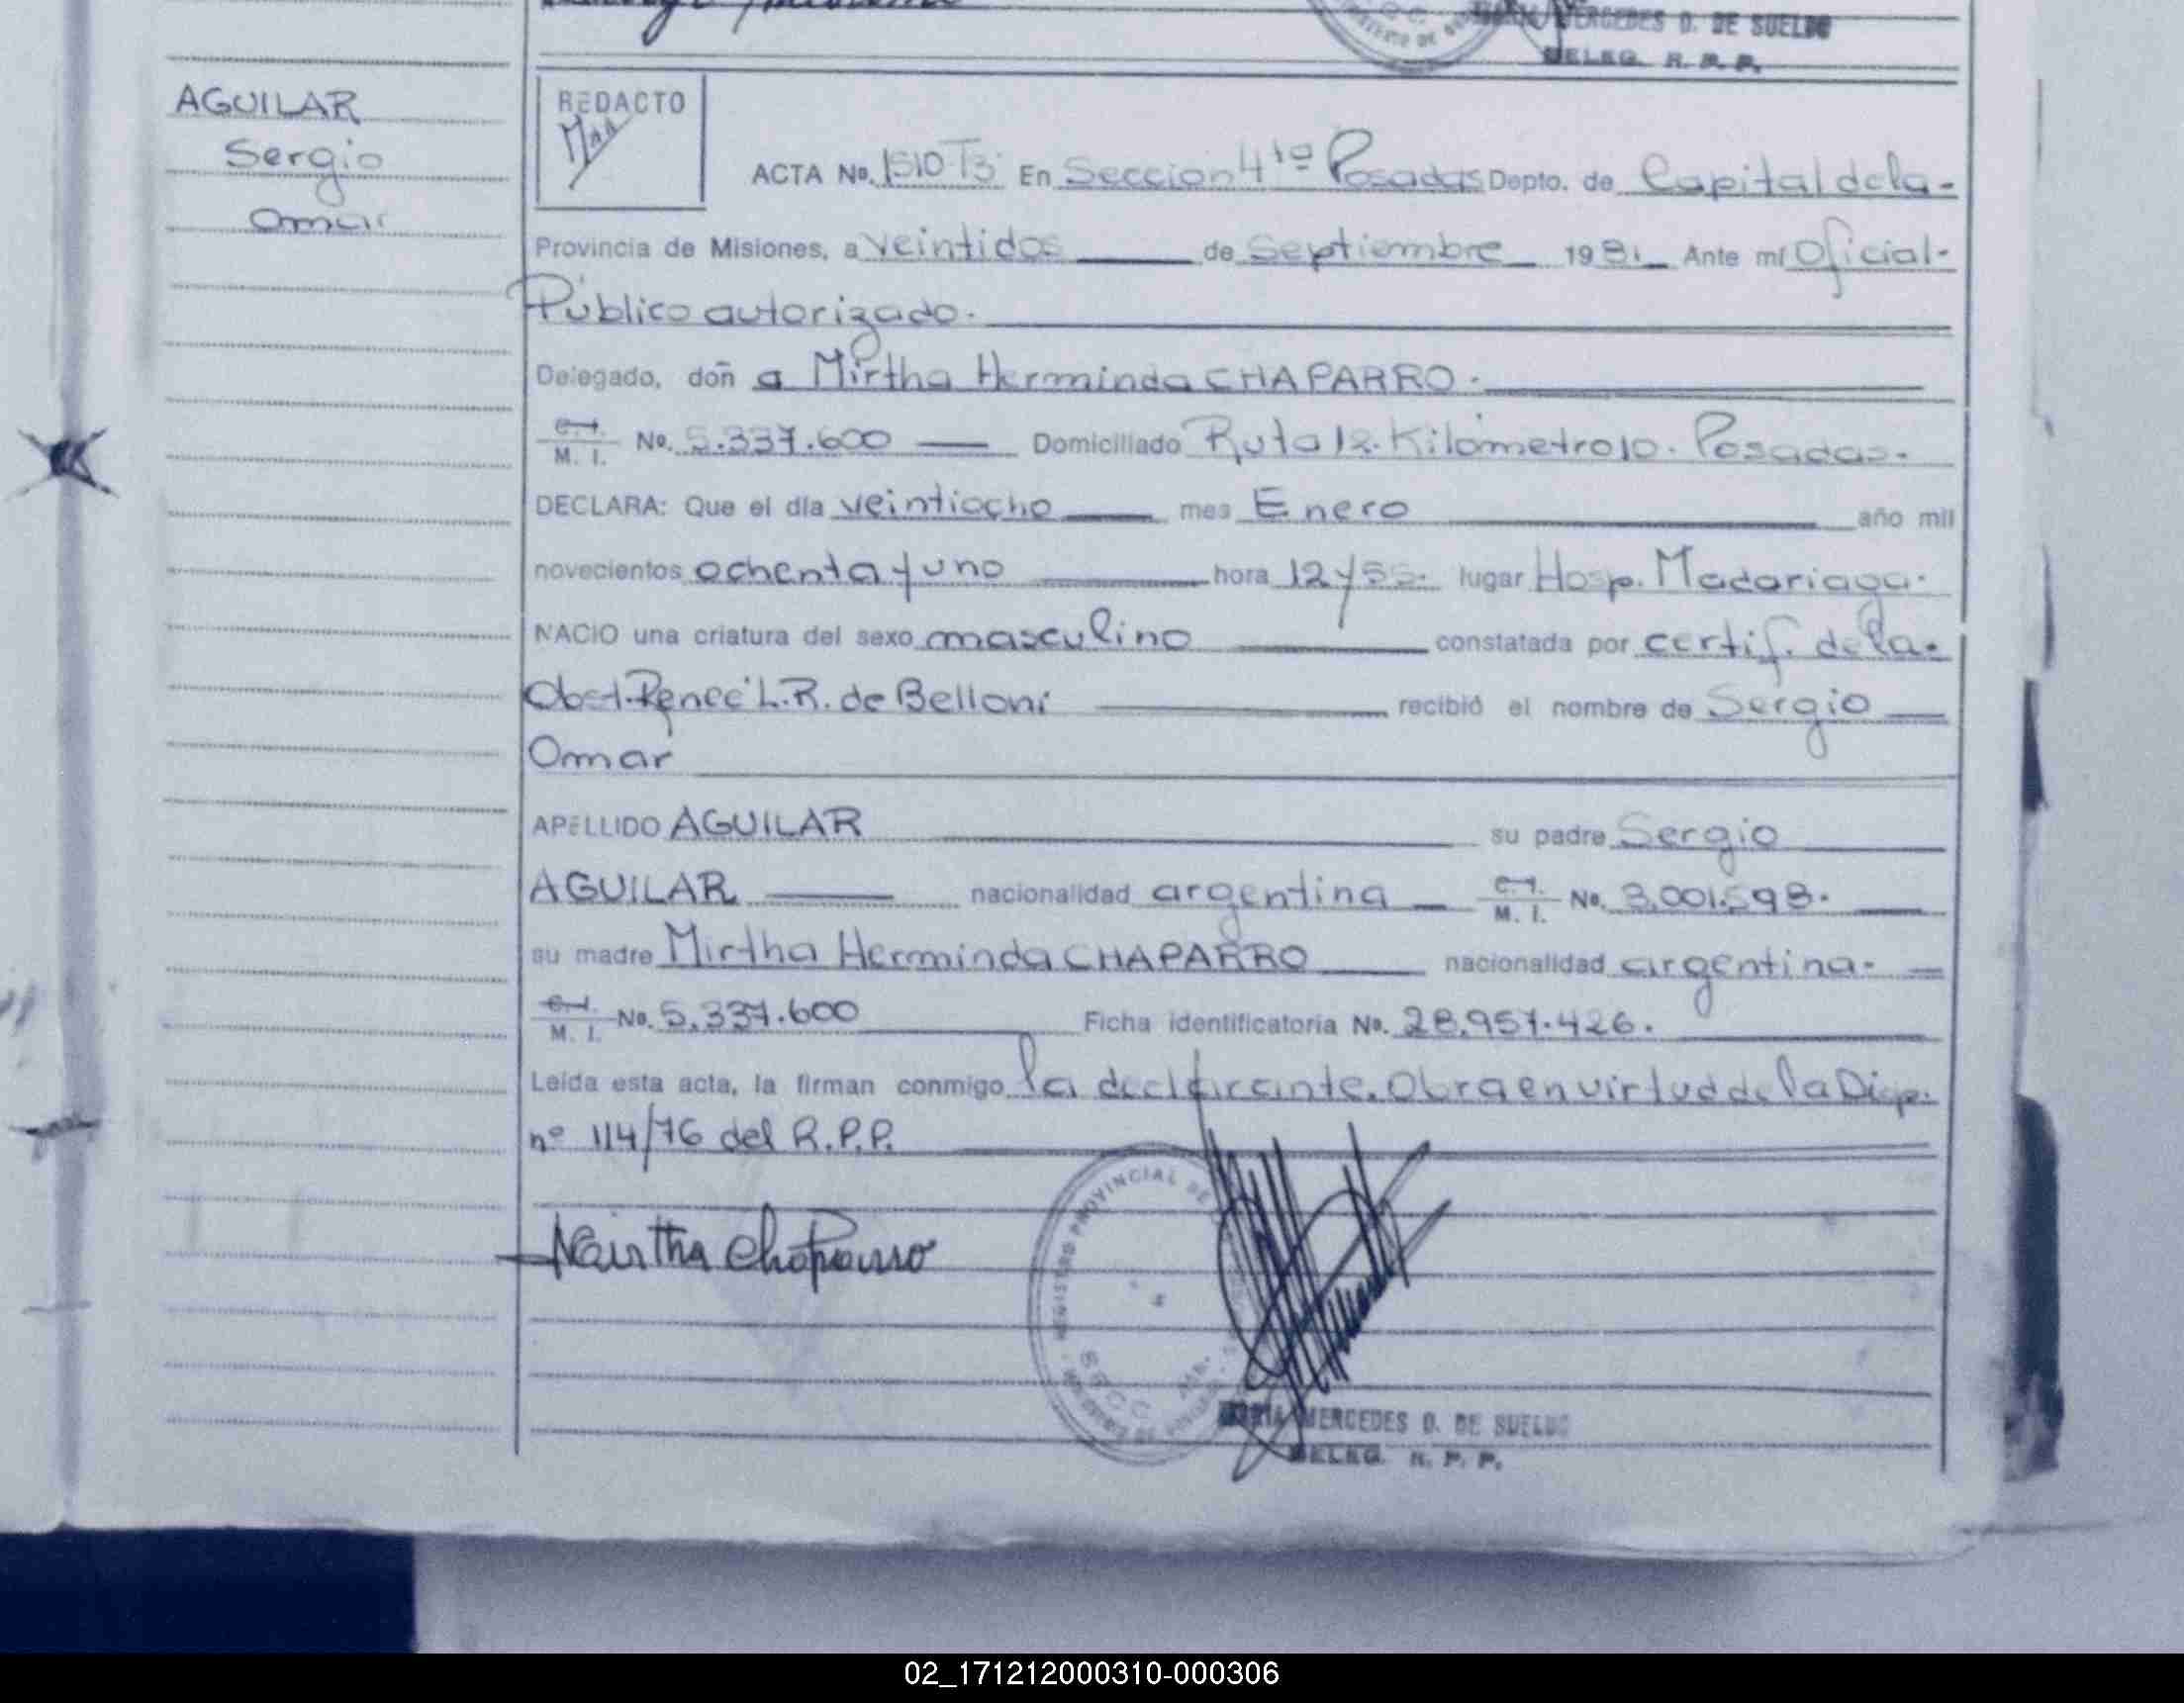 MERCEDES O. DE SUELDO
DELEG. R. P. P.
AGUILAR
Sergio
Omar
REDACTO
ACTA No. 1510 T3 En Seccion 4ta Posadas Depto. de Capital de la-
Provincia de Misiones, a veintidos de Septiembre 1981 Ante mí Oficial-
Público autorizado.
Delegado, doñ a Mirtha Herminda CHAPARRO.
C.I. M. I. No. 5.337.600 Domiciliado Ruta 12. Kilómetro 10. Posadas.
DECLARA: Que el día veintiocho mes Enero año mil
novecientos ochenta y uno hora 12 y 55. lugar Hosp. Madariaga.
NACIO una criatura del sexo masculino constatada por certif. de la.
Obst. Renee L.R. de Belloni recibió el nombre de Sergio
Omar
APELLIDO AGUILAR su padre Sergio
AGUILAR nacionalidad argentina C.I. M. I. No. 8.001.598.
su madre Mirtha Herminda CHAPARRO nacionalidad argentina.
C.I. M. I. No. 5.337.600 Ficha identificatoria No. 28.957.426.
Leída esta acta, la firman conmigo la declarante. Obra en virtud de la Disp.
nº 114/76 del R.P.P.
Mirtha Chaparro
REGISTRO PROVINCIAL DE
MARIA MERCEDES O. DE SUELDO
DELEG. R. P. P.
02_171212000310-000306